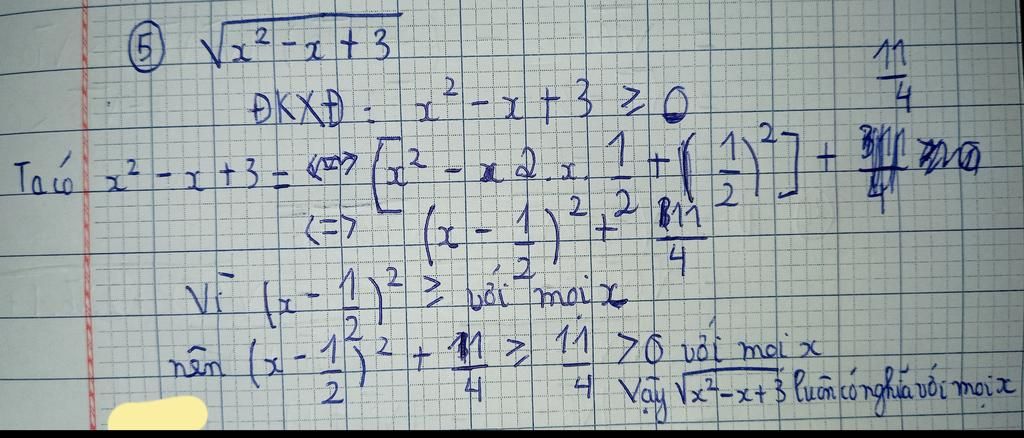 ⑤ √(x² - x + 3)
11/4
ĐKXĐ: x² - x + 3 ≥ 0
Ta có x² - x + 3 = <=> [x² - 2.x.1/2 + (1/2)²] + 11/4
<=> (x - 1/2)² + 11/4
Vì (x - 1/2)² ≥ với mọi x
nên (x - 1/2)² + 11/4 ≥ 11/4 > 0 với mọi x
Vậy √(x² - x + 3) luôn có nghĩa với mọi x